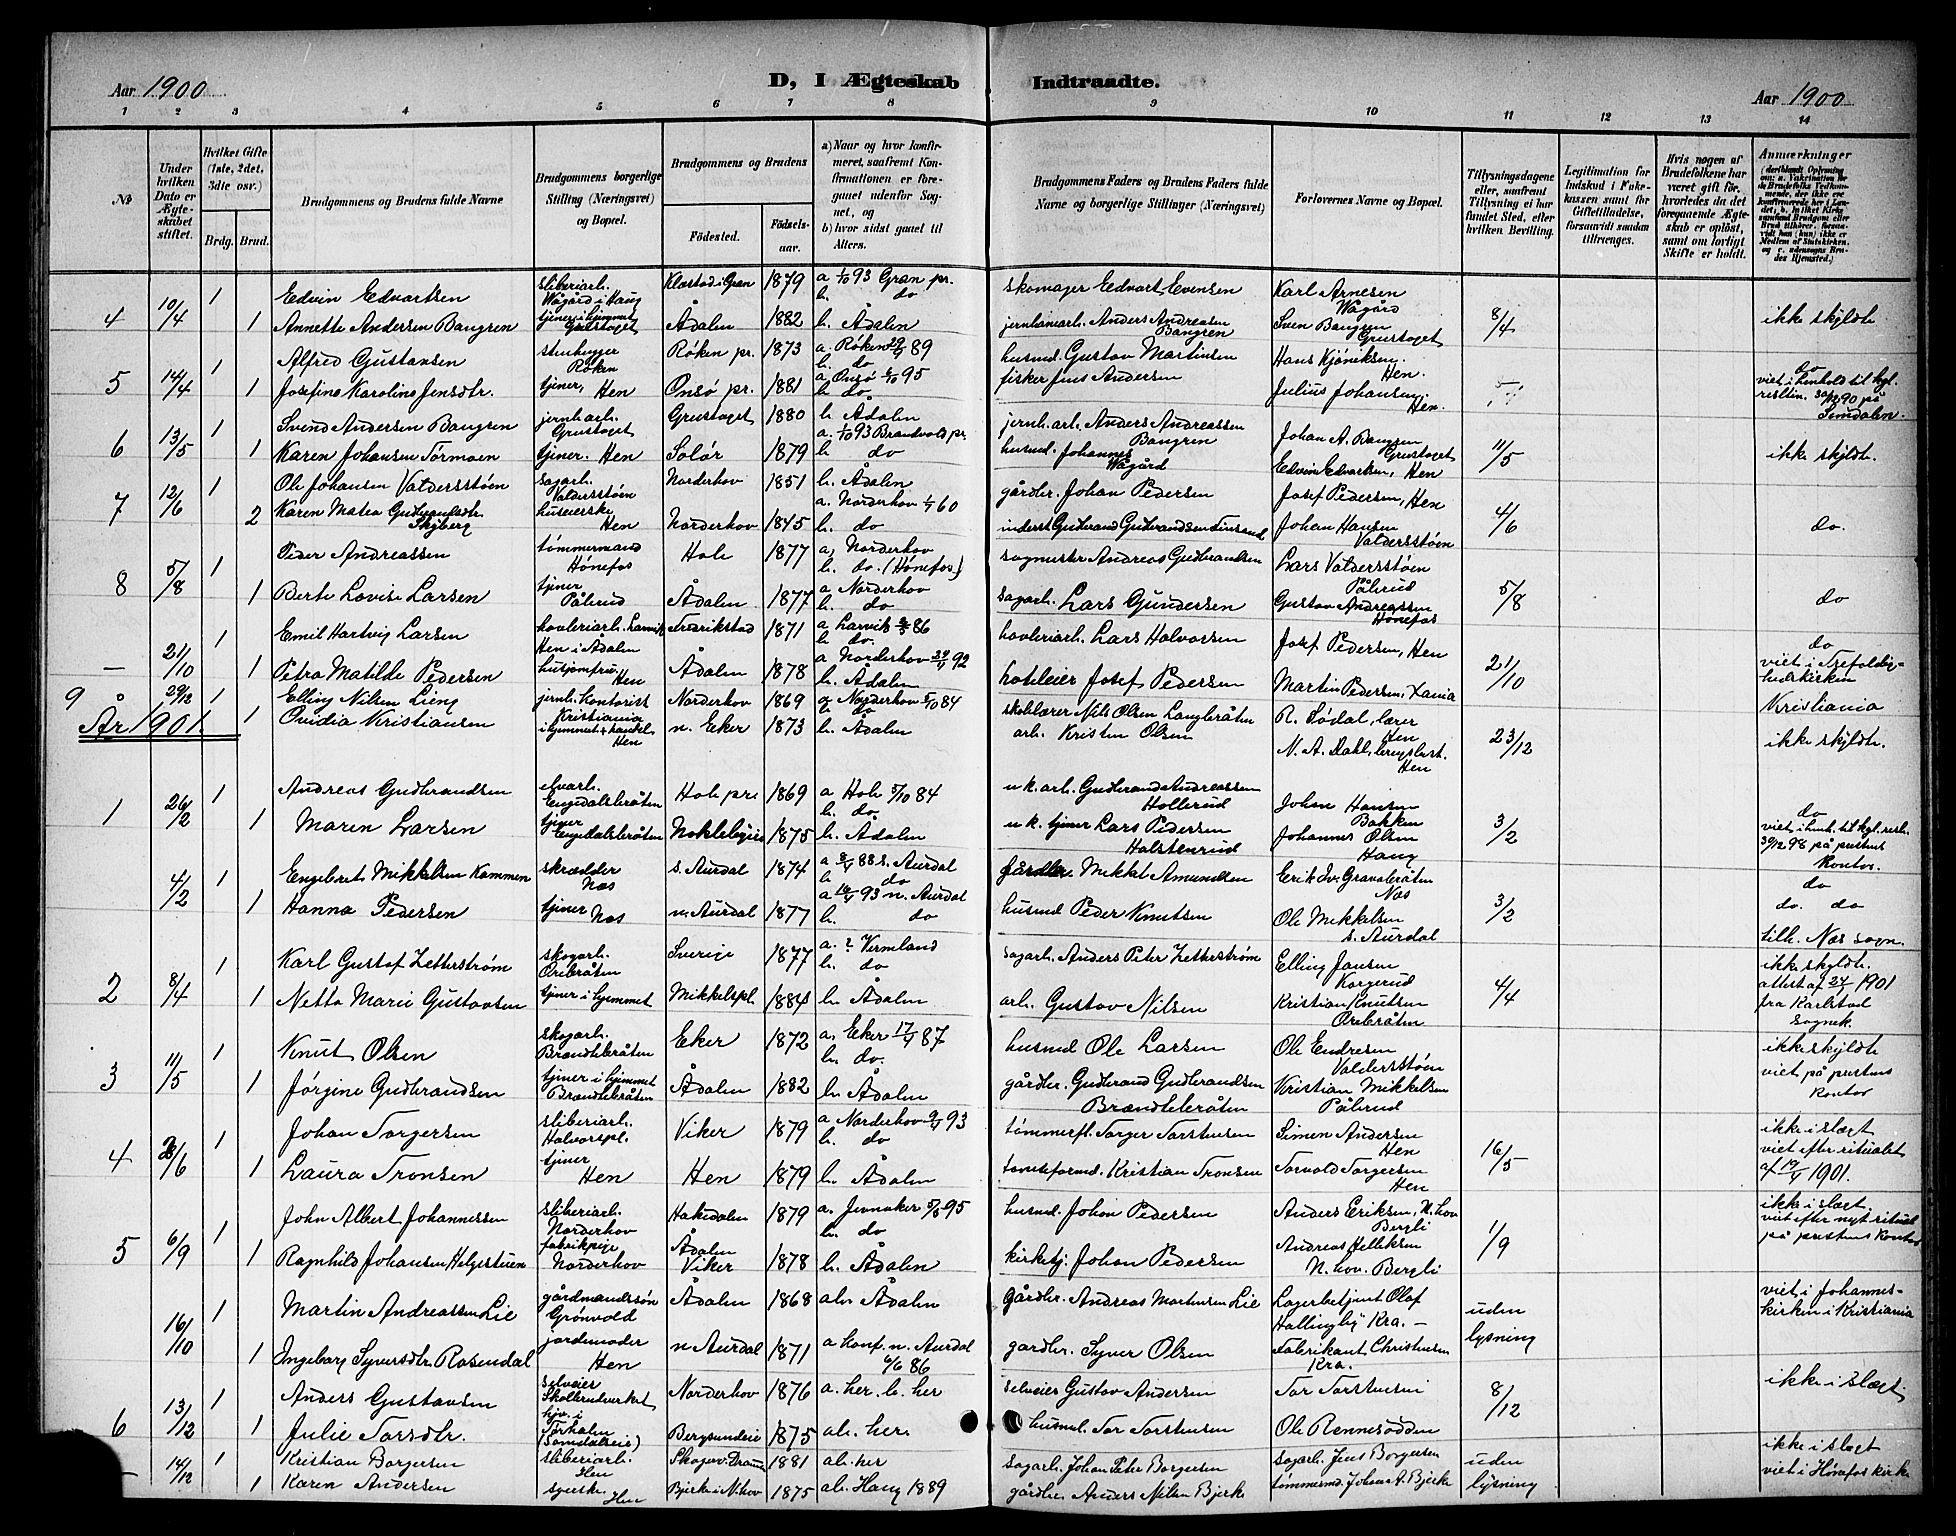 Aar 1900
D, I Ægteskab Indtraadte.
Aar 1900
1 2 3 4 5 6 7 8 9 10 11 12 13 14
No
Under hvilken Dato er Ægteskabet stiftet.
Hvilket Gifte (1ste, 2det, 3die osv.)
Brdg. Brud.
Brudgommens og Brudens fulde Navne
Brudgommens borgerlige Stilling (Næringsvei) og Bopæl.
Brudgommens og Brudens
Fødested. Fødselsaar.
a) Naar og hvor konfirmeret, saafremt Konfirmationen er foregaaet udenfor Sognet, og
b) hvor sidst gaaet til Alters.
Brudgommens Faders og Brudens Faders fulde Navne og borgerlige Stillinger (Næringsvei)
Forlovernes Navne og Bopæl.
Tillysningsdagene eller, saafremt Tillysning ei har fundet Sted, efter hvilken Bevilling.
Legitimation for Indskud i Enkekassen samt for Giftetilladelse, forsaavidt saadan tiltrænges.
Hvis nogen af Brudefolkene har været gift før, hvorledes da det foregaaende Ægteskab er opløst, samt om lovligt Skifte er holdt.
Anmærkninger
4 10/4 1 Edvin Edvartsen sliberiarb. Wågård i Haug Klæstad i Gran 1879 a 1/10 93 Gran pr. b. do skomager Edvart Evensen Karl Arnesen Wågård 8/4 ikke skyldte
1 Annette Andersen Bangren tjener i hjemmet Grustaget Ådalen 1882 b. Ådalen jernbanearb. Anders Andreasen Bangren Sven Bangren Grustaget
5 14/4 1 Alfred Gustavsen stenhugger Røken Røken pr. 1873 a. Røken 89 b. do husmd. Gustav Martinsen Hans Kjøniksen Hen. do
1 Josefine Karoline Jensdtr. tjener, Hen Onsø pr. 1881 a Onsø 95 b do fisker Jens Andersen Julius Johansen Hen. viet i henhold til kgl. 90 på
6 13/5 1 Svend Andersen Bangren jernb.arb. Grustaget Grustaget 1880 b. Ådalen jernb.arb. Anders Andreassen Bangren Johan A. Bangren Grustaget 11/5 ikke skyldte
1 Karen Johansen Tormoen tjener. Hen Solør 1879 a. 1/10 93 Brandvold pr. b do husmd. Johannes Wågård Edvin Edvartsen, Hen
7 12/6 1 Ole Johansen Valdersstøen sagarb. Valdersstøen Norderhov 1851 b. Ådalen gårdbr. Johan Pedersen Josef Pedersen, Hen 4/6 do.
2 Karen Matea Gudbrandsdtr. Skjberg huseierske Hen Norderhov 1845 a. Norderhov 60 b. do inderst Gudbrand Gudbrandsen Johan Hansen Valdersstøen
8 5/8 1 Peder Andreassen tømmermand Hønefos Hole 1877 a, Norderhov b. do. (Hønefos) sagmester Andreas Gudbrandsen Lars Valdersstøen Pålerud 5/8 do
1 Berte Lovise Larsen tjener Pålerud Ådalen 1877 a Norderhov b do sagarb. Lars Gundersen Gustav Andreassen Hønefos
— 21/10 1 Emil Hartvig Larsen høvleriarb. Larvik Hen i Ådalen Fredrikstad 1871 a Larvik 86 b do høvleriarb. Lars Halvorsen Josef Pedersen, Hen 21/10 do
1 Petra Matilde Pedersen husjomfru Hen Ådalen 1878 a Norderhov 92 b. Ådalen hoteleier Josef Pedersen Martin Pedersen, Xania viet i Trefoldighedskirken Kristiania
9 29/12 1 Elling Nilsen Lieng jernb. Kontorist Kristiania Norderhov 1869 a Norderhov 5/10 84 b do skolelærer Nils Olsen Langbråten R. Sødal, lærer Hen 23/12
1 Ovidia Kristiansen i hjemmet handel Hen n. Eker 1873 b. Ådalen arb. Kristen Olsen N. A. Dahl, Hen ikke skyldte.
År 1901.
1 26/2 1 Andreas Gudbrandsen elvarb. Engedalsbråten Hole pr. 1869 a Hole 5/10 84 b. do u. k. arb. Gudbrand Andreassen Hollerud Johan Hansen Bakken 3/2 do
1 Maren Larsen tjener Engedalsbråten 1875 b. Ådalen u. k. tjener Lars Pedersen Halstenrud Johannes Olsen Haug viet i henh. til kgl. resl. 30/12 98 på prestens kontor.
4/2 1 Engebret Mikkelsen Kammen skrædder Næs s. Aurdal 1874 a 88 s. Aurdal b do gårdbr. Mikkel Amundsen Erik Iv. Gravabråten Næs 3/2 do
1 Hanna Pedersen tjener Næs n. Aurdal 1877 a 93 n. Aurdal b. do husmd Peder Knutsen Ole Mikkelsen s. Aurdal do. do tilh. Næs sogn.
2 8/4 1 Karl Gustaf Zetterstrøm skogarb. Orebråten Sverige 1877 a. ? Vermland b. do sagarb. Anders Peter Zetterstrøm Elling Jansen Korgerud 4/4 ikke skyldte. attest af 1901 fra Karlstad sognek.
1 Netta Marie Gustavsen tjener i hjemmet Mikkelspl. 1884 b. Ådalen arb. Gustav Nilsen Kristian Knutsen Orebråten
3 11/5 1 Knut Olsen skogarb. Brændtebråten Eker 1872 a. Eker 87 b. do. husmd Ole Larsen Ole Endresen Valdersstøen ikke skyldte
1 Jørgine Gudbrandsen tjener i hjemmet Brændtebråten Ådalen 1882 b. Ådalen gårdbr. Gudbrand Gudbrandsen Brændtebråten Kristian Mikkelsen Pålerud viet på prestens kontor
4 2/6 1 Johan Torgersen sliberiarb. Halvorspl. Viker 1879 a Norderhov 93 b. do tømmerfl. Torger Torstensen Simen Andersen Hen 16/5 ikke i slægt
1 Laura Tronsen tjener Hen Hen 1879 b. Ådalen tomteformd. Kristian Tronsen Torvald Torgersen Hen viet efter ritualet af 1901.
5 6/9 1 John Albert Johannessen sliberiarb. Norderhov Hakedalen 1879 a. Jevnaker 95 b. do husmd. Johan Pedersen Anders Eriksen, N.hov Bergli 1/9 ikke i slægt.
1 Ragnhild Johansen Helgestuen fabrikpige Norderhov Ådalen Viker 1878 b. Ådalen kirketj. Johan Pedersen Andreas Helliksen N. hov. Bergli viet efter nyt ritual på prestens kontor
16/10 1 Martin Andreassen Lie gårdmandssøn Grønvold Ådalen 1868 ab. Ådalen Gårdbr. Andreas Martinsen Lie Lagerbetjent Olaf Hallingby Kra. — uden lysning viet i Johanneskirken i Kristiania
1 Ingeborg Syversdtr. Rosendal jordemoder Hen n Aurdal 1871 a konf. n. Aurdal 86 gårdbr. Syver Olsen Fabrikant Christensen Kra.
6 13/12 1 Anders Gustavsen selveier Norderhov 1876 a. her. b. her selveier Gustav Andersen Tor Torstensen 8/12 ikke i slægt
1 Julie Torsdtr. hjv. i Bergsundeie 1875 ab. her. husmd. Tor Torstensen Ole Rennesødden
— 14/12 1 Kristian Borgersen sliberiarb. Hen Skoger. Dramm 1881 ab. her sagarb. Johan Peter Borgersen sagarb. Jens Borgersen uden lysning ikke i slægt
1 Karen Andersen syerske Hen Bjerke i N.hov 1875 ab. Haug 1889 gårdbr. Anders Nilsen Bjerke tømmermd. Johan A. Bjerke viet i Hønefos kirke